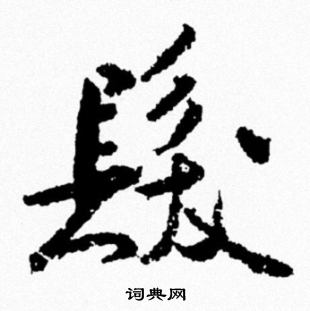 髮
词典网